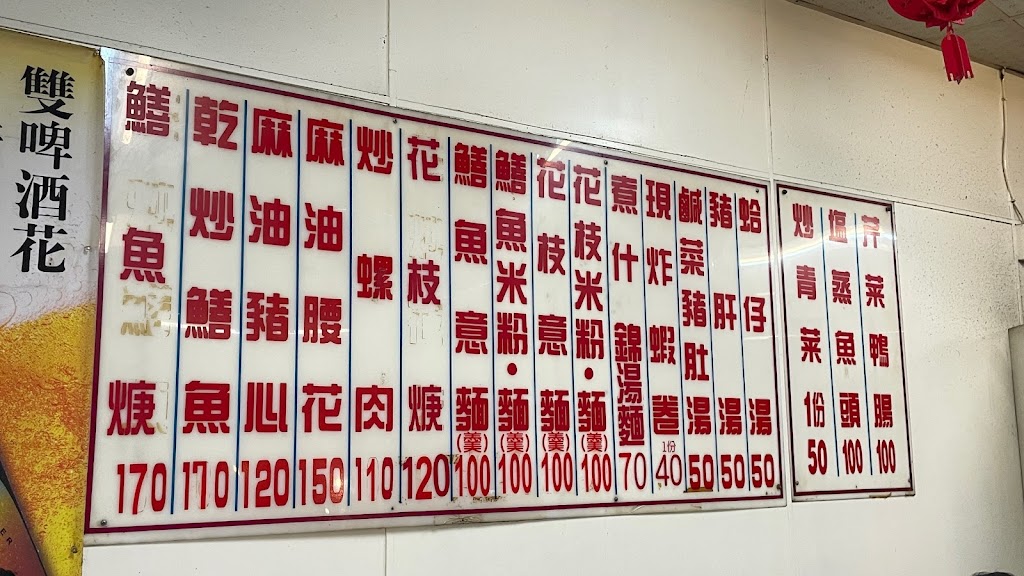 雙啤酒花
鱔魚焿 170
乾炒鱔魚 170
麻油豬心 120
麻油腰花 150
炒螺肉 110
花枝焿 120
鱔魚意麵(羹) 100
鱔魚米粉•麵(羹) 100
花枝意麵(羹) 100
花枝米粉•麵(羹) 100
煮什錦湯麵 70
現炸蝦卷 1份 40
鹹菜豬肚湯 50
豬肝湯 50
蛤仔湯 50
炒青菜 1份 50
塩蒸魚頭 100
芹菜鴨腸 100